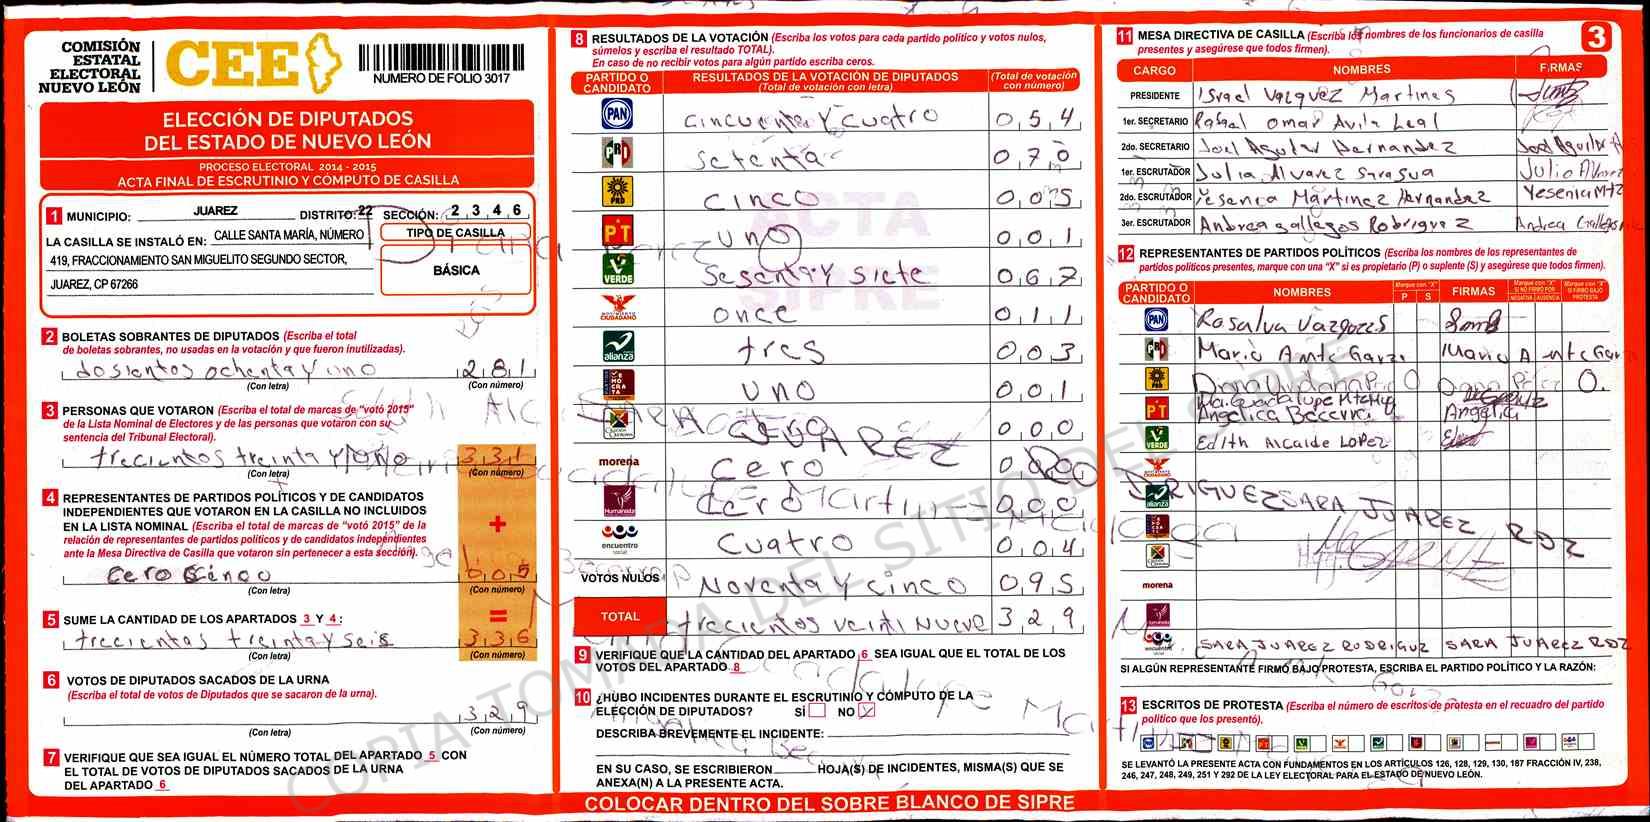 COMISIÓN
ESTATAL
ELECTORAL
NUEVO LEÓN
CEE
NUMERO DE FOLIO 3017
ELECCIÓN DE DIPUTADOS
DEL ESTADO DE NUEVO LEÓN
PROCESO ELECTORAL 2014 - 2015
ACTA FINAL DE ESCRUTINIO Y CÓMPUTO DE CASILLA
1 MUNICIPIO: JUAREZ DISTRITO: 22 SECCIÓN: 2 3 4 6
LA CASILLA SE INSTALÓ EN: CALLE SANTA MARÍA, NÚMERO
419, FRACCIONAMIENTO SAN MIGUELITO SEGUNDO SECTOR,
JUAREZ, CP 67266
TIPO DE CASILLA
BÁSICA
2 BOLETAS SOBRANTES DE DIPUTADOS (Escriba el total
de boletas sobrantes, no usadas en la votación y que fueron inutilizadas).
dosientos ochenta y uno 2 8 1
(Con letra) (Con número)
3 PERSONAS QUE VOTARON (Escriba el total de marcas de "votó 2015"
de la Lista Nominal de Electores y de las personas que votaron con su
sentencia del Tribunal Electoral).
trecientos treinta y uno 3 3 1
(Con letra) (Con número)
4 REPRESENTANTES DE PARTIDOS POLÍTICOS Y DE CANDIDATOS
INDEPENDIENTES QUE VOTARON EN LA CASILLA NO INCLUIDOS
EN LA LISTA NOMINAL (Escriba el total de marcas de "votó 2015" de la
relación de representantes de partidos políticos y de candidatos independientes
ante la Mesa Directiva de Casilla que votaron sin pertenecer a esta sección).
+
Cero Cinco 0 0 5
(Con letra) (Con número)
=
5 SUME LA CANTIDAD DE LOS APARTADOS 3 Y 4:
trecientos treinta y seis 3 3 6
(Con letra) (Con número)
6 VOTOS DE DIPUTADOS SACADOS DE LA URNA
(Escriba el total de votos de Diputados que se sacaron de la urna).
3 2 9
(Con letra) (Con número)
7 VERIFIQUE QUE SEA IGUAL EL NÚMERO TOTAL DEL APARTADO 5 CON
EL TOTAL DE VOTOS DE DIPUTADOS SACADOS DE LA URNA
DEL APARTADO 6
8 RESULTADOS DE LA VOTACIÓN (Escriba los votos para cada partido político y votos nulos,
súmelos y escriba el resultado TOTAL).
En caso de no recibir votos para algún partido escriba ceros.
PARTIDO O
CANDIDATO
RESULTADOS DE LA VOTACIÓN DE DIPUTADOS
(Total de votación con letra)
(Total de votación
con número)
PAN cincuenta y cuatro 0 5 4
PRD setenta 0 7 0
PRD cinco 0 0 5
PT uno 0 0 1
VERDE sesenta y siete 0 6 7
MOVIMIENTO CIUDADANO once 0 1 1
alianza tres 0 0 3
DEMOCRATA uno 0 0 1
cero 0 0 0
morena cero 0 0 0
Humanista cero 0 0 0
encuentro social cuatro 0 0 4
VOTOS NULOS Noventa y cinco 0 9 5
TOTAL trecientos veinti nueve 3 2 9
ACTA
SIPRE
9 VERIFIQUE QUE LA CANTIDAD DEL APARTADO 6 SEA IGUAL QUE EL TOTAL DE LOS
VOTOS DEL APARTADO 8
10 ¿HUBO INCIDENTES DURANTE EL ESCRUTINIO Y CÓMPUTO DE LA
ELECCIÓN DE DIPUTADOS? SÍ NO X
DESCRIBA BREVEMENTE EL INCIDENTE:
EN SU CASO, SE ESCRIBIERON HOJA(S) DE INCIDENTES, MISMA(S) QUE SE
ANEXA(N) A LA PRESENTE ACTA.
COLOCAR DENTRO DEL SOBRE BLANCO DE SIPRE
COPIA TOMADA DEL SITIO DEL SIPRE
11 MESA DIRECTIVA DE CASILLA (Escriba los nombres de los funcionarios de casilla
presentes y asegúrese que todos firmen).
3
CARGO NOMBRES FIRMAS
PRESIDENTE Israel Vazquez Martines
1er. SECRETARIO Rafael Omar Avila Leal
2do. SECRETARIO Joel Aguilar Hernandez Joel Aguilar H
1er. ESCRUTADOR Julia Alvarez Julio Alvarez
2do. ESCRUTADOR Yesenia Martinez Hernandez Yesenia Mtz
3er. ESCRUTADOR Andrea gallegos Rodriguez Andrea Gallegos
12 REPRESENTANTES DE PARTIDOS POLÍTICOS (Escriba los nombres de los representantes de
partidos políticos presentes, marque con una "X" si es propietario (P) o suplente (S) y asegúrese que todos firmen).
PARTIDO O
CANDIDATO
NOMBRES
Marque con "X"
P S
FIRMAS
Marque con "X"
SI NO FIRMÓ POR
NEGATIVA AUSENCIA
Marque con "X"
SI FIRMÓ BAJO
PROTESTA
PAN Rosalva
Mario Amte Garza
PT Ma. Guadalupe
Angelica Becerra Angelica
VERDE Edith Alcalde LOPEZ
alianza
SARA JUAREZ RDZ
morena
encuentro social SARA JUAREZ RODRIGUZ SARA JUAREZ RDZ
SI ALGÚN REPRESENTANTE FIRMÓ BAJO PROTESTA, ESCRIBA EL PARTIDO POLÍTICO Y LA RAZÓN:
13 ESCRITOS DE PROTESTA (Escriba el número de escritos de protesta en el recuadro del partido
político que los presentó).
SE LEVANTÓ LA PRESENTE ACTA CON FUNDAMENTOS EN LOS ARTÍCULOS 126, 128, 129, 130, 187 FRACCIÓN IV, 238,
246, 247, 248, 249, 251 Y 292 DE LA LEY ELECTORAL PARA EL ESTADO DE NUEVO LEÓN.